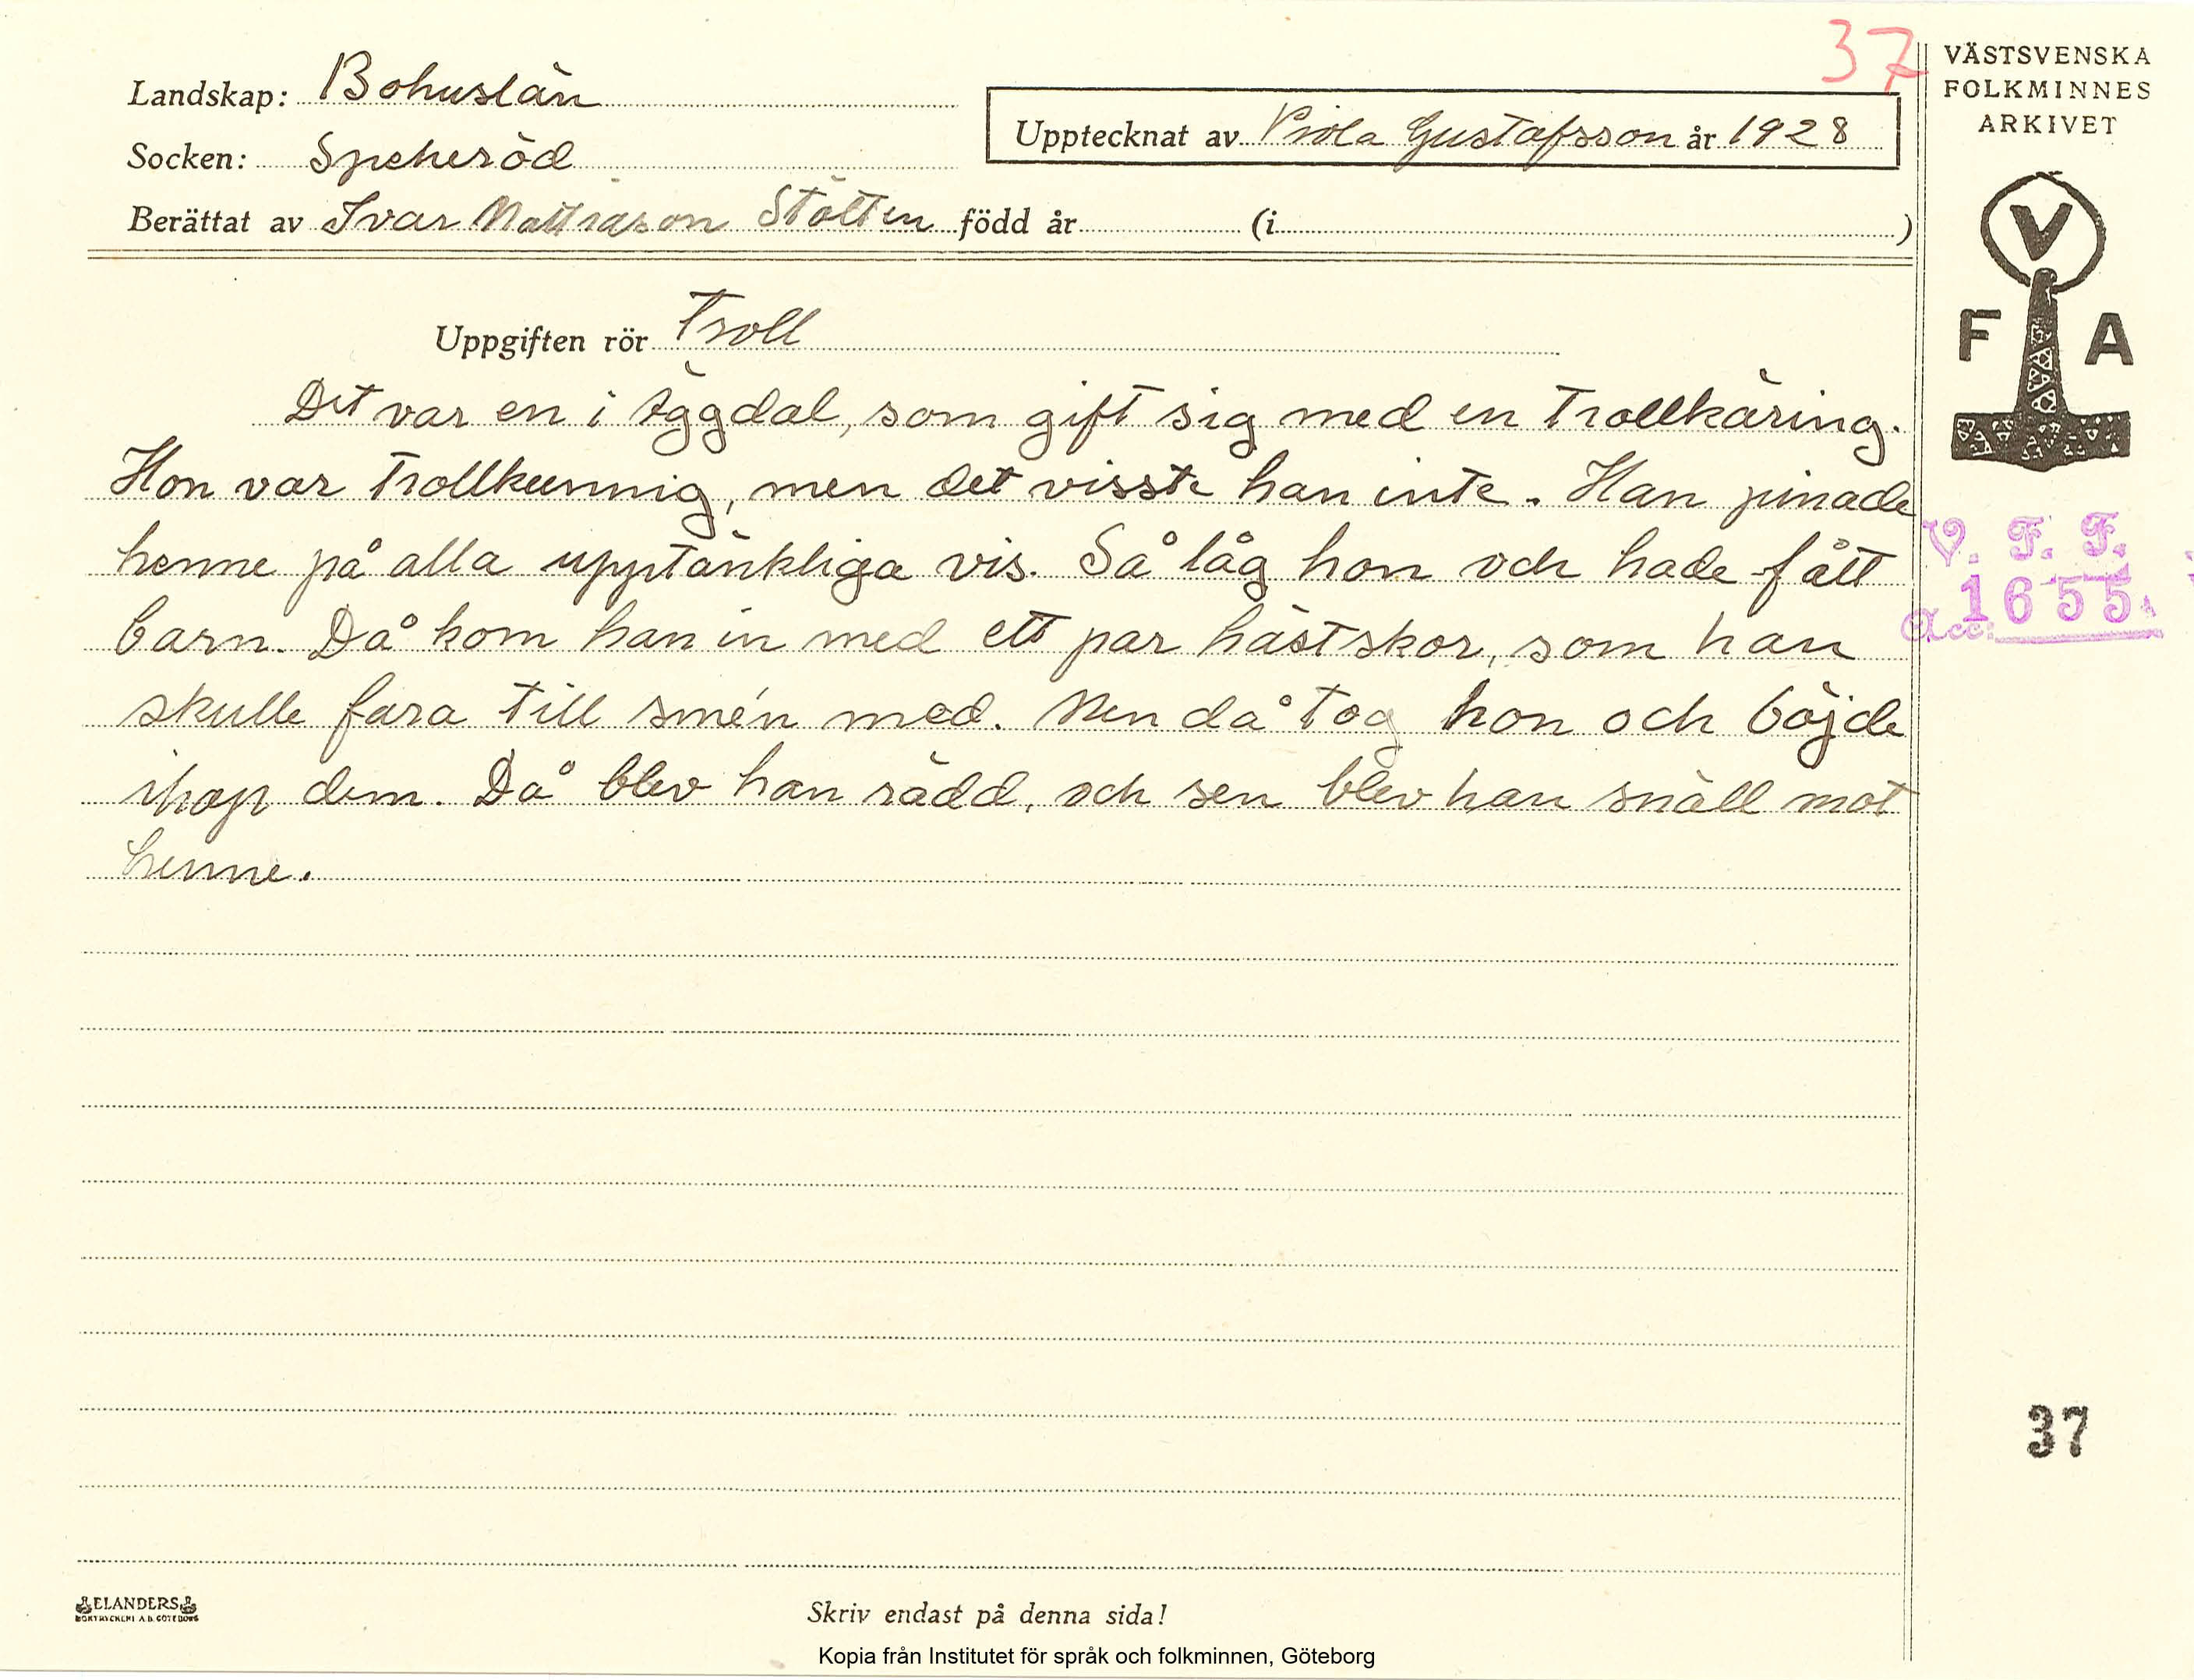 37
VÄSTSVENSKA
FOLKMINNES
ARKIVET
Landskap: Bohuslän
Upptecknat av Viola Gustafsson år 1928
Socken: Speheröd
Berättat av Ivar Mattiasson Stölten född år (i )
V
F A
Uppgiften rör Troll
Det var en i Äggdal, som gift sig med en trollkäring.
Hon var trollkunnig, men det visste han inte. Han pinade
henne på alla upptänkliga vis. Så låg hon och hade fått
barn. Då kom han in med ett par hästskor, som han
skulle fara till smén med. Men då tog hon och böjde
ihop dem. Då blev han rädd, och sen blev han snäll mot
henne.
V. F. F.
Acc: 1655
37
ELANDERS
BOKTRYCKERI A.B. GÖTEBORG
Skriv endast på denna sida!
Kopia från Institutet för språk och folkminnen, Göteborg